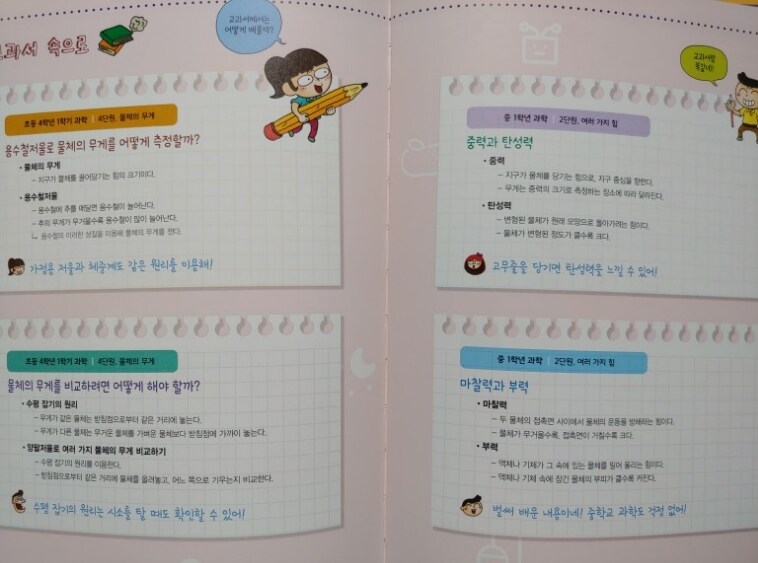 교과서 속으로
교과서에서는
어떻게 배울까?
초등 4학년 1학기 과학 | 4단원. 물체의 무게
용수철저울로 물체의 무게를 어떻게 측정할까?
• 물체의 무게
– 지구가 물체를 끌어당기는 힘의 크기이다.
• 용수철저울
– 용수철에 추를 매달면 용수철이 늘어난다.
– 추의 무게가 무거울수록 용수철이 많이 늘어난다.
ㄴ 용수철의 이러한 성질을 이용해 물체의 무게를 잰다.
가정용 저울과 체중계도 같은 원리를 이용해!
초등 4학년 1학기 과학 | 4단원. 물체의 무게
물체의 무게를 비교하려면 어떻게 해야 할까?
• 수평 잡기의 원리
– 무게가 같은 물체는 받침점으로부터 같은 거리에 놓는다.
– 무게가 다른 물체는 무거운 물체를 가벼운 물체보다 받침점에 가까이 놓는다.
• 양팔저울로 여러 가지 물체의 무게 비교하기
– 수평 잡기의 원리를 이용한다.
– 받침점으로부터 같은 거리에 물체를 올려놓고, 어느 쪽으로 기우는지 비교한다.
수평 잡기의 원리는 시소를 탈 때도 확인할 수 있어!
교과서랑
똑같네!
중 1학년 과학 | 2단원. 여러 가지 힘
중력과 탄성력
• 중력
– 지구가 물체를 당기는 힘으로, 지구 중심을 향한다.
– 무게는 중력의 크기로 측정하는 장소에 따라 달라진다.
• 탄성력
– 변형된 물체가 원래 모양으로 돌아가려는 힘이다.
– 물체가 변형된 정도가 클수록 크다.
고무줄을 당기면 탄성력을 느낄 수 있어!
중 1학년 과학 | 2단원. 여러 가지 힘
마찰력과 부력
• 마찰력
– 두 물체의 접촉면 사이에서 물체의 운동을 방해하는 힘이다.
– 물체가 무거울수록, 접촉면이 거칠수록 크다.
• 부력
– 액체나 기체가 그 속에 있는 물체를 밀어 올리는 힘이다.
– 액체나 기체 속에 잠긴 물체의 부피가 클수록 커진다.
벌써 배운 내용이네! 중학교 과학도 걱정 없어!